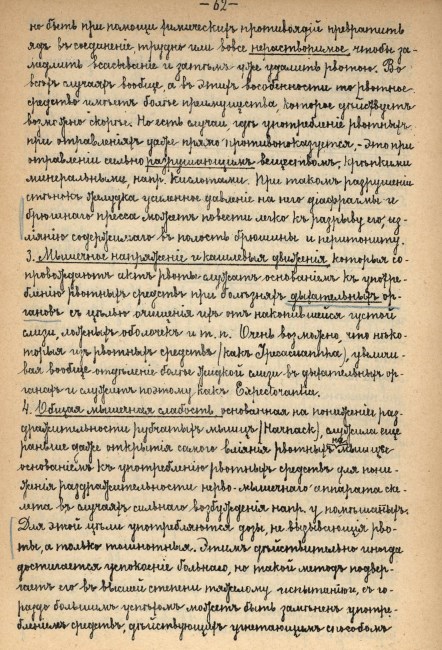 – 62 –
но быть при помощи химическихъ противоядій превратить
ядъ въ соединеніе, трудно или вовсе нерастворимое, чтобы за-
медлить всасываніе и затѣмъ уже удалить рвотою. Во
всѣхъ случаяхъ вообще, а въ этихъ въ особенности то рвотное
средство имѣетъ болѣе преимущества, которое дѣйствуетъ
возможно скорѣе. Но есть случаи, гдѣ употребленіе рвотныхъ
при отравленіяхъ даже прямо противопоказуется, – это при
отравленіи сильно разрушающимъ веществомъ, крѣпкими
минеральными, напр. кислотами. При такомъ разрушеніи
стѣнокъ желудка усиленное давленіе на него діафрагмы и
брюшнаго пресса можетъ повести легко къ разрыву его, из-
ліянію содержимаго въ полость брюшины и перитониту.
3. Мышечное напряженіе и кашлевыя движенія, которыя со-
провождаютъ актъ рвоты служатъ основаніемъ къ упот-
ребленію рвотныхъ средствъ при болѣзняхъ дыхательныхъ ор-
гановъ съ цѣлью очищенія ихъ отъ накопившейся густой
слизи, ложныхъ оболочекъ и т. п. Очень возможно, что нѣко-
торыя изъ рвотныхъ средствъ (какъ Ipecacuanha), увеличи-
вая вообще отдѣленіе болѣе жидкой слизи въ дыхательныхъ ор-
ганахъ и служатъ поэтому какъ Expectorantia.
4. Общая мышечная слабость, основанная на пониженіи раз-
дражительности рубчатыхъ мышцъ (Harnack), служила еще
раньше даже открытія самого вліянія рвотныхъ на мышцы
основаніемъ къ употребленію рвотныхъ средствъ для пони-
женія раздражительности нервно-мышечнаго аппарата ске-
лета въ случаяхъ сильнаго возбужденія напр. у помѣшаныхъ.
Для этой цѣли употребляются дозы, не вызывающія рво-
ты, а только тошнотныя. Этимъ дѣйствительно иногда
достигается успокоеніе больнаго, но такой методъ подвер-
гаетъ его въ высшей степени тяжелому испытанію, съ го-
раздо большимъ успѣхомъ можетъ быть замѣненъ употре-
бленіемъ средствъ, дѣйствующихъ угнетающимъ способомъ